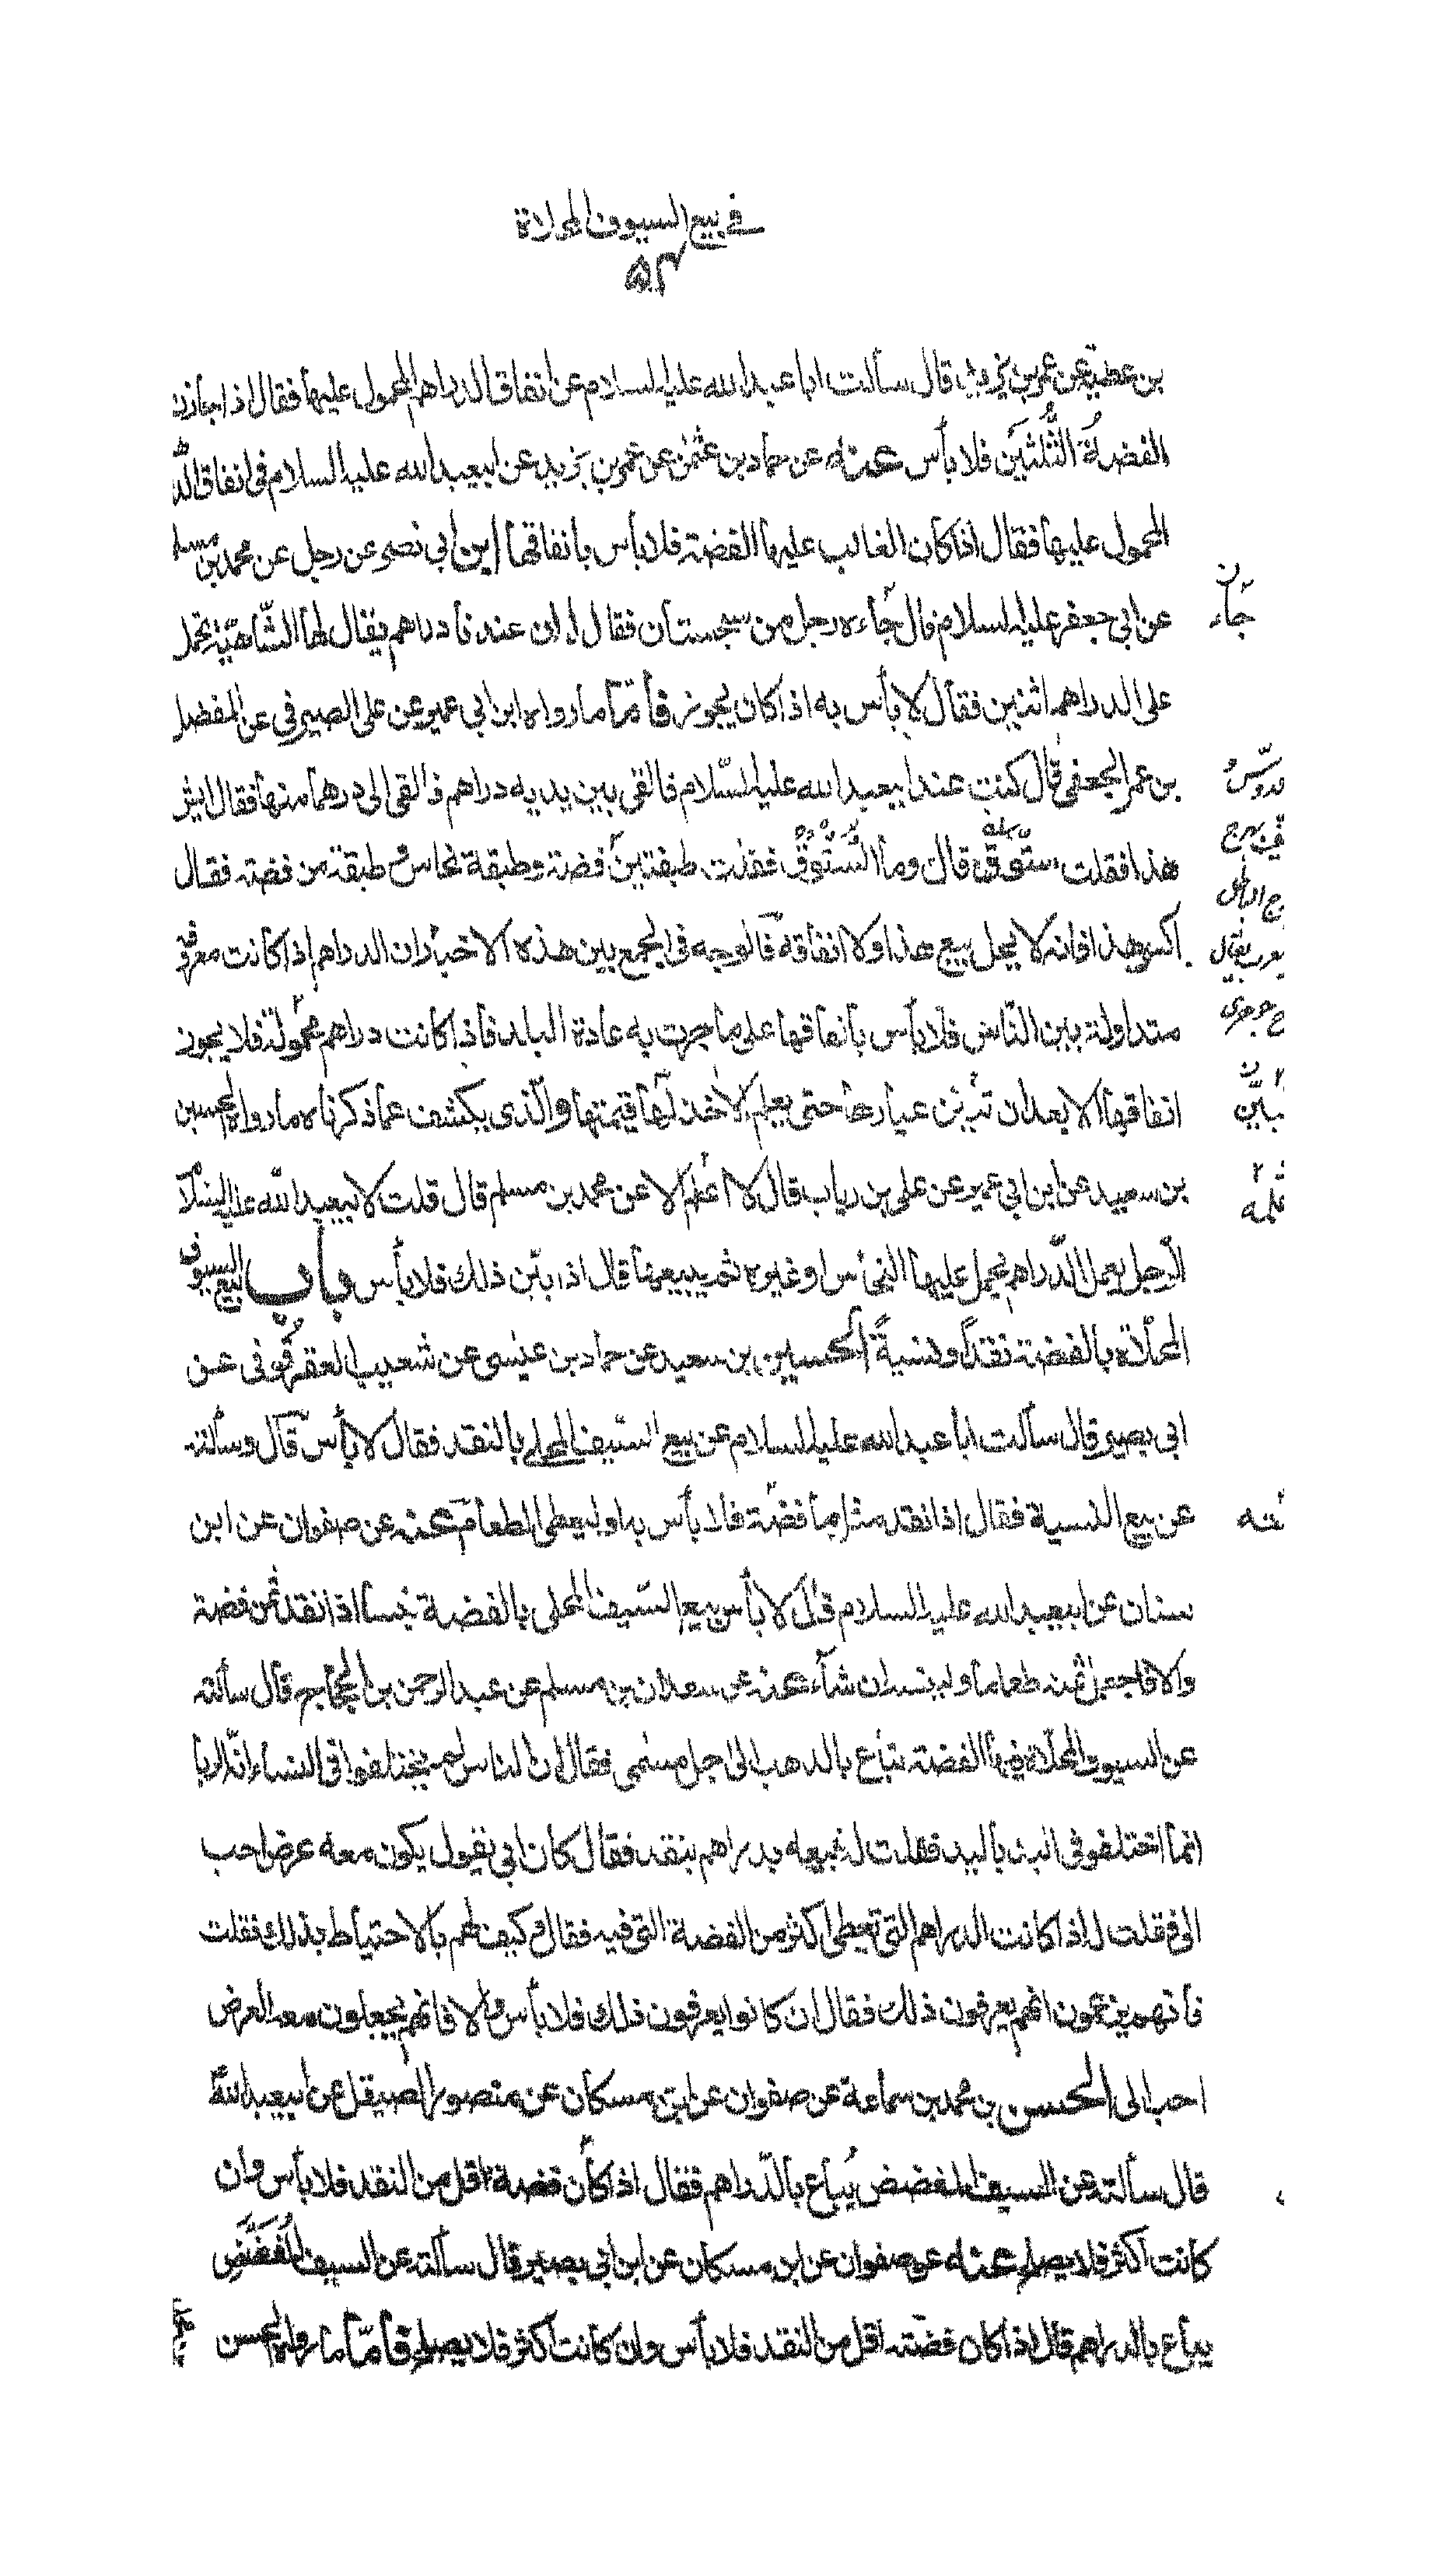 في بيع السيوف المحلاة
٥٣
بن عطية عن عمر بن يزيد قال سألت ابا عبد الله عليه السلام عن انفاق الدراهم المحمول عليها فقال اذا جازت
الفضةُ الثُّلثين فلا بأس عنه عن حماد بن عثمن عن عمر بن يزيد عن ابيعبد الله عليه السلام في انفاق الد
المحمول عليها فقال اذا كان الغالب عليها الفضة فلا بأس بانفاقها ابن أبي نصر عن رجل عن محمد بن مسلم
عن ابي جعفر عليه السلام قال جاءه رجل من سجستان فقال له ان عندنا دراهم يقال لها الشاهية تحمل
على الدراهم اثنين فقال لا بأس به اذا كان يجوز فأمّا ما رواه ابن ابي عمير عن على الصيرفي عن المفضل
بن عمر الجعفي قال كنت عند ابيعبد الله عليه السّلام فالقى بين يديه دراهم فالقى الى درهما منها فقال ايش
هذا فقلت ستّوق قال وما السُّتُّوق فقلت طبقتين فضة وطبقة نحاس وطبقة من فضة فقال
اكسر هذا فانه لا يحل بيع هذا ولا انفاقه فالوجه في الجمع بين هذه الاخبار ان الدراهم اذا كانت معروفة
متداولة بين النّاس فلا بأس بانفاقها على ما جرت به عادة البلد فاذا كانت دراهم محمولة فلا يجوز
انفاقها الا بعد ان تبيّن عيارها حتى يعلم الآخذ لها قيمتها والّذي يكشف عما ذكرناه ما رواه الحسين
بن سعيد عن ابن ابي عمير عن علي بن رياب قال لا اعلم الا عن محمد بن مسلم قال قلت لابيعبد الله عليه السلا
الرّجل يعمل الدّراهم يحمل عليها النحاس او غيره ثم يبيعها قال اذا بيّن ذلك فلا بأس باب بيع السيوف
المحلّاة بالفضة نقداً ونسيةً الحسين بن سعيد عن حماد بن عيسى عن شعيب العقرقوفي عن
ابي بصير قال سألت ابا عبد الله عليه السلام عن بيع السّيف المحلى بالنقد فقال لا بأس قال وسألته
عن بيع النسية فقال اذا نقد مثل ما فضّة فلا بأس به او ليعطى الطعام عنه عن صفوان عن ابن
سنان عن ابيعبد الله عليه السلام قال لا بأس ببيع السّيف المحلى بالفضة بنسأ اذا نقد ثمن فضة
والا فاجعل ثمنه طعاما ولينسه ان شاء عنه عن سعدان بن مسلم عن عبد الرحمن بن الحجاج قال سألته
عن السيوف المحلّاة فيها الفضة تباع بالذهب الى اجل مسمى فقال ان الناس لم يختلفوا في النساء انّه الربا
انما اختلفو في اليد باليد فقلت له نبيعه بدراهم بنقد فقال كان ابي يقول يكون معه عرض احب
الى فقلت له اذا كانت الدراهم التي تعطى اكثر من الفضة التي فيه فقال وكيف لهم بالاحتياط بذلك فقلت
فانهم يزعمون انهم يعرفون ذلك فقال ان كانوا يعرفون ذلك فلا بأس والا فانهم يجعلون معه العرض
احب الى الحسن بن محمد بن سماعة عن صفوان عن ابن مسكان عن منصور الصيقل عن ابيعبد الله
قال سألته عن السيف المفضض يُباع بالدّراهم فقال اذا كان فضة اقل من النقد فلا بأس وان
كانت اكثر فلا يصلح عنه عن صفوان عن ابن مسكان عن ابن ابي بصير قال سألته عن السيف المُفَضَّض
يباع بالدراهم قال اذا كان فضته اقل من النقد فلا بأس وان كانت اكثر فلا يصلح فأمّا ما رواه الحسن
جاءَ